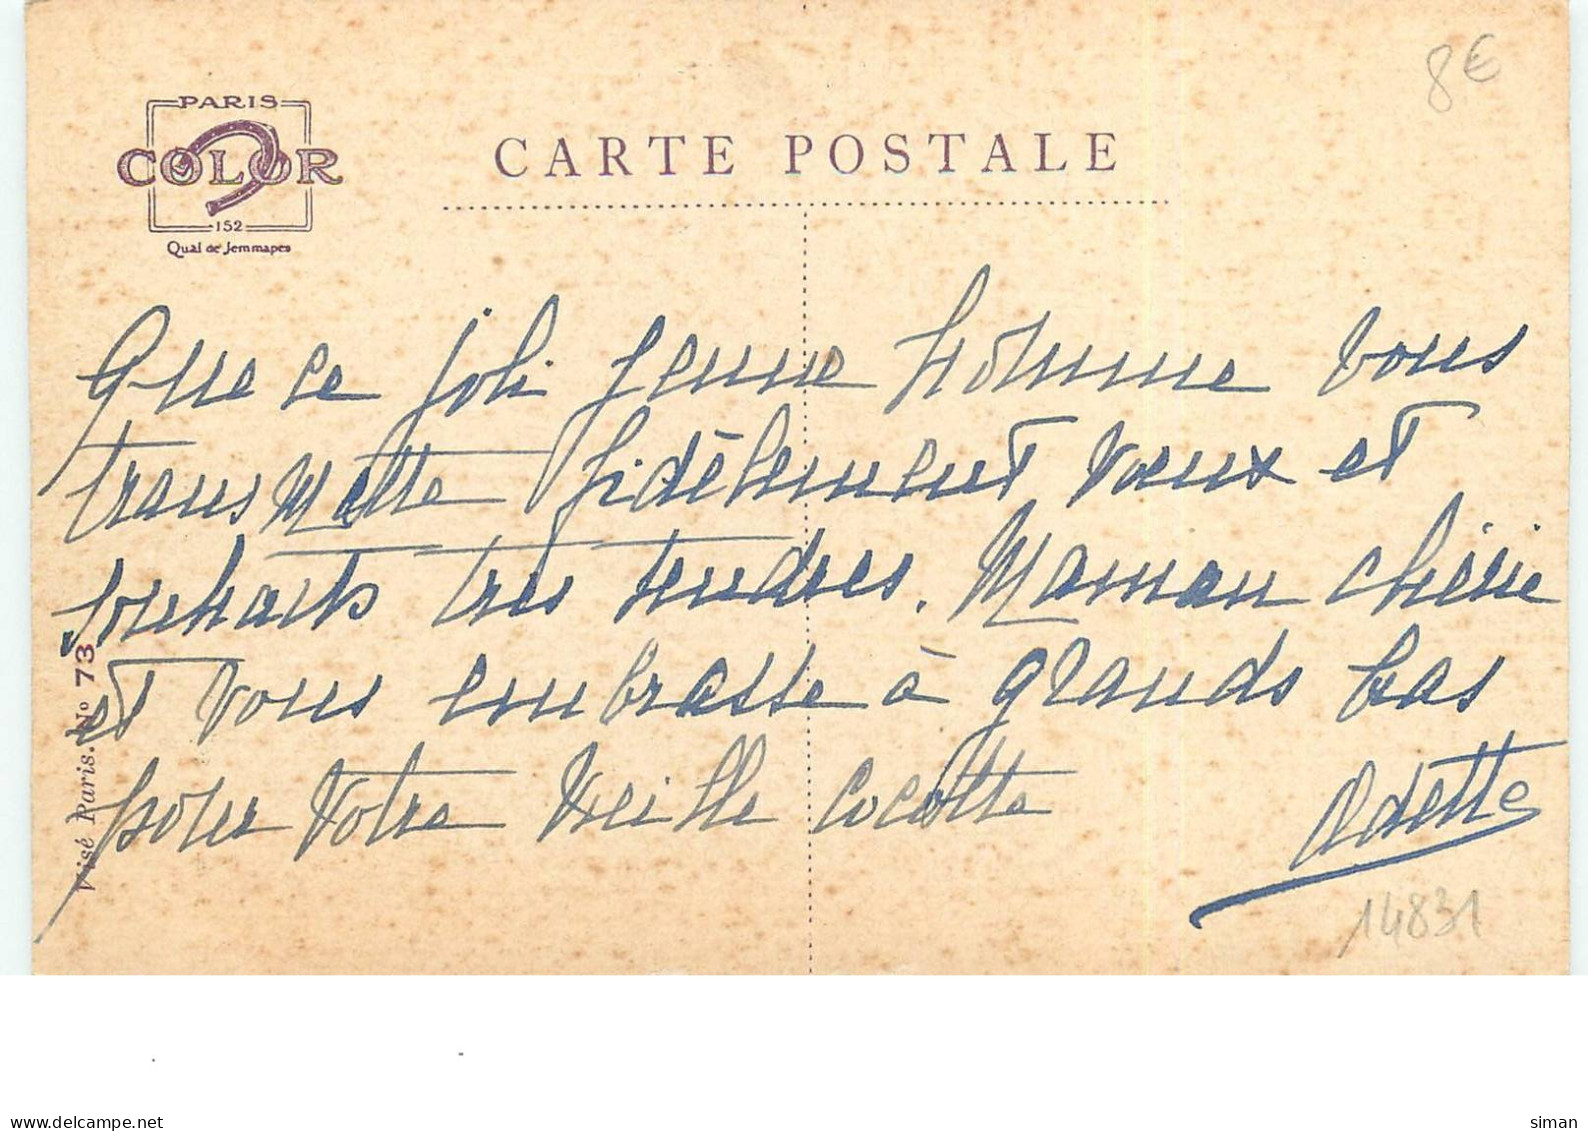 8€
PARIS
COLOR
152
Quai de Jemmapes
CARTE POSTALE
Que ce joli jeune homme vous
transmette fidèlement vœux et
souhaits très tendres. Maman chérie
et vous embrasse à grands bras
pour votre vieille cocotte
Odette
14831
Visé Paris. No 73
www.delcampe.net
siman